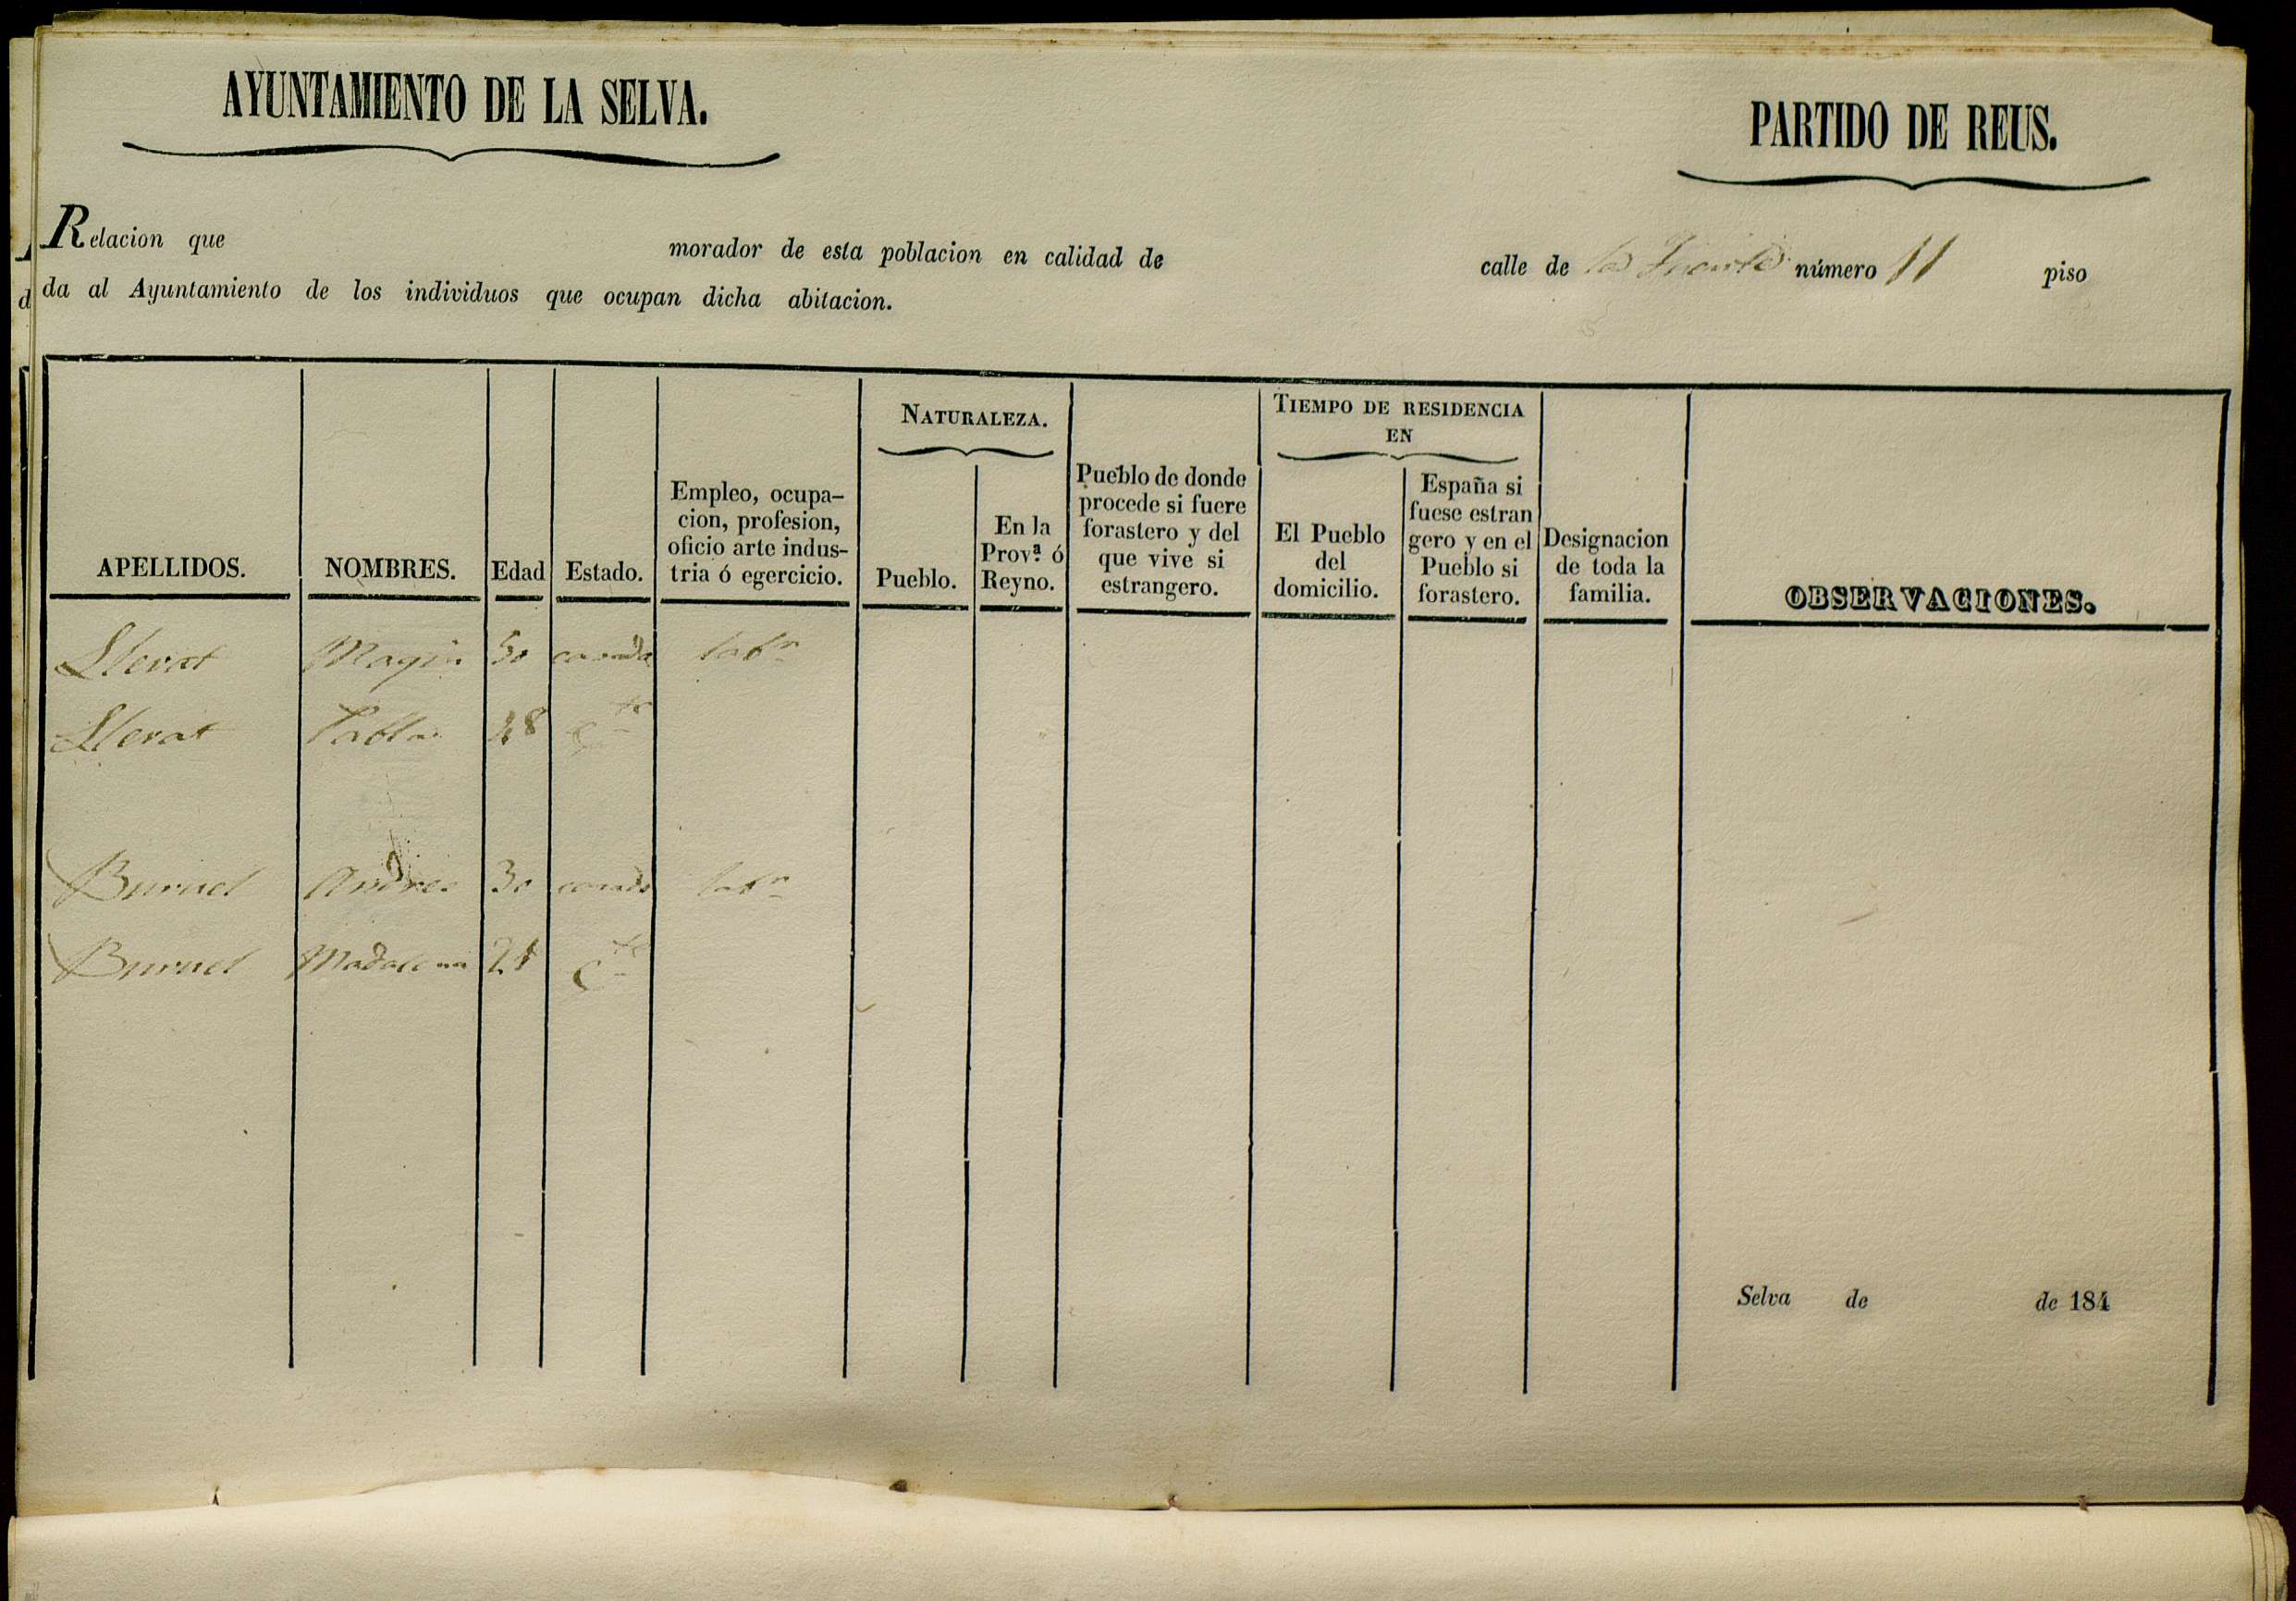 AYUNTAMIENTO DE LA SELVA.
PARTIDO DE REUS.
Relacion que morador de esta poblacion en calidad de calle de las Fuentes número 11 piso
da al Ayuntamiento de los individuos que ocupan dicha abitacion.
NATURALEZA.
TIEMPO DE RESIDENCIA
EN
APELLIDOS.
NOMBRES.
Edad
Estado.
Empleo, ocupa-
cion, profesion,
oficio arte indus-
tria ó egercicio.
Pueblo.
En la
Prov.ª ó
Reyno.
Pueblo de donde
procede si fuere
forastero y del
que vive si
estrangero.
El Pueblo
del
domicilio.
España si
fuese estran
gero y en el
Pueblo si
forastero.
Designacion
de toda la
familia.
OBSERVACIONES.
Llevat Magin 50 casado labr
Llevat Pablo 48
Buruel Andres 30 casado labr
Buruel Madalena
Selva de de 184